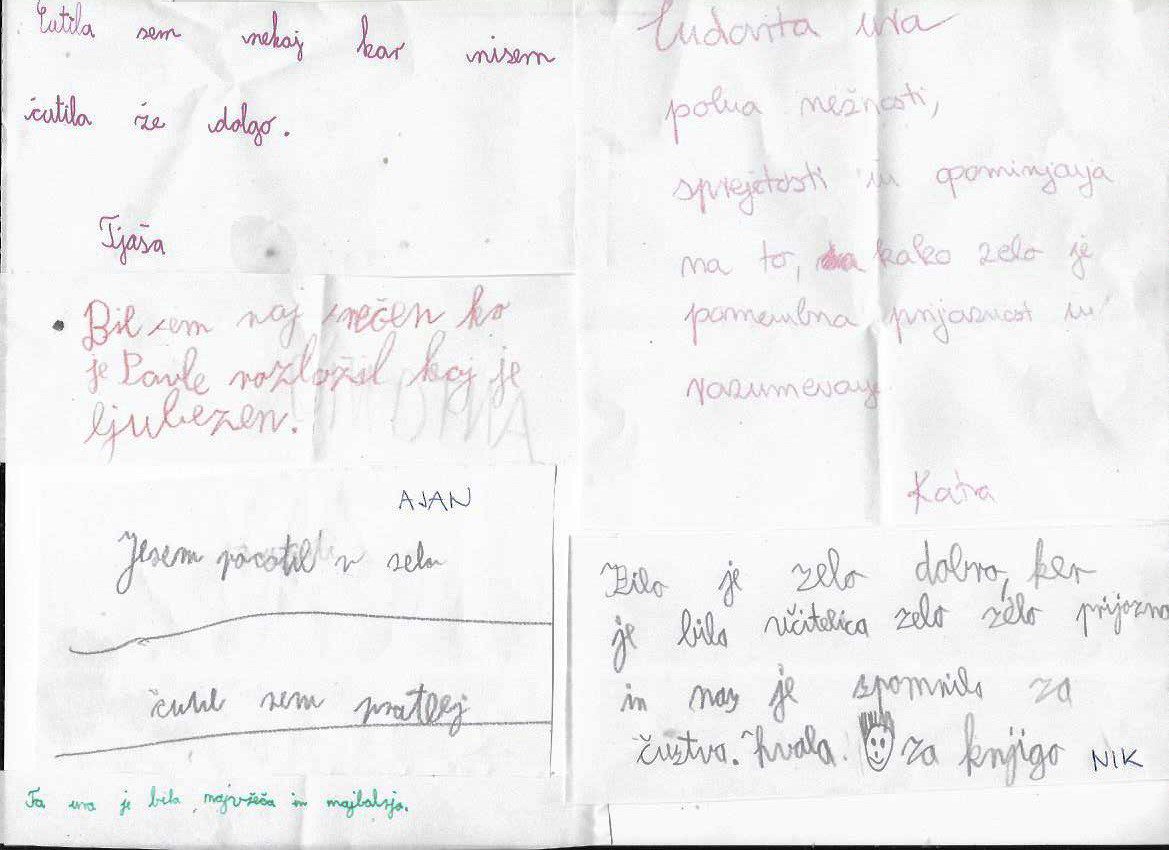 Čutila sem nekaj kar nisem
čutila že dolgo.
Tjaša
Bil sem naj srečen ko
je Pavle razložil kaj je
ljubezen.
AJAN
sem v
čutil sem
Ta ura je bila najvžeča in najbalsja.
Čudovita ura
polna nežnosti,
sprejetosti in opominjanja
na to, kako zelo je
pomembna prijaznost in
razumevanje
Katra
Bilo je zelo dobro, ker
je bila učitelica zelo zelo prijazna
in nas je spomnila za
čustva. hvala. za knjigo
NIK